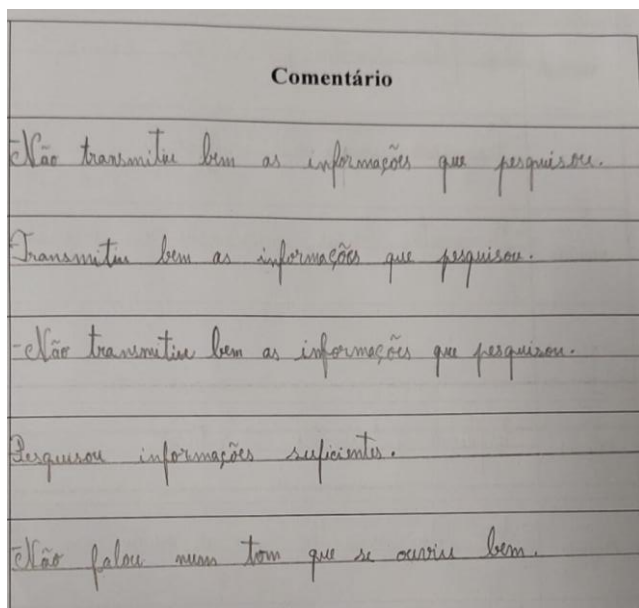 Comentário
- Não transmitiu bem as informações que pesquisou.
Transmitiu bem as informações que pesquisou.
- Não transmitiu bem as informações que pesquisou.
Pesquisou informações suficientes.
- Não falou num tom que se ouviu bem.